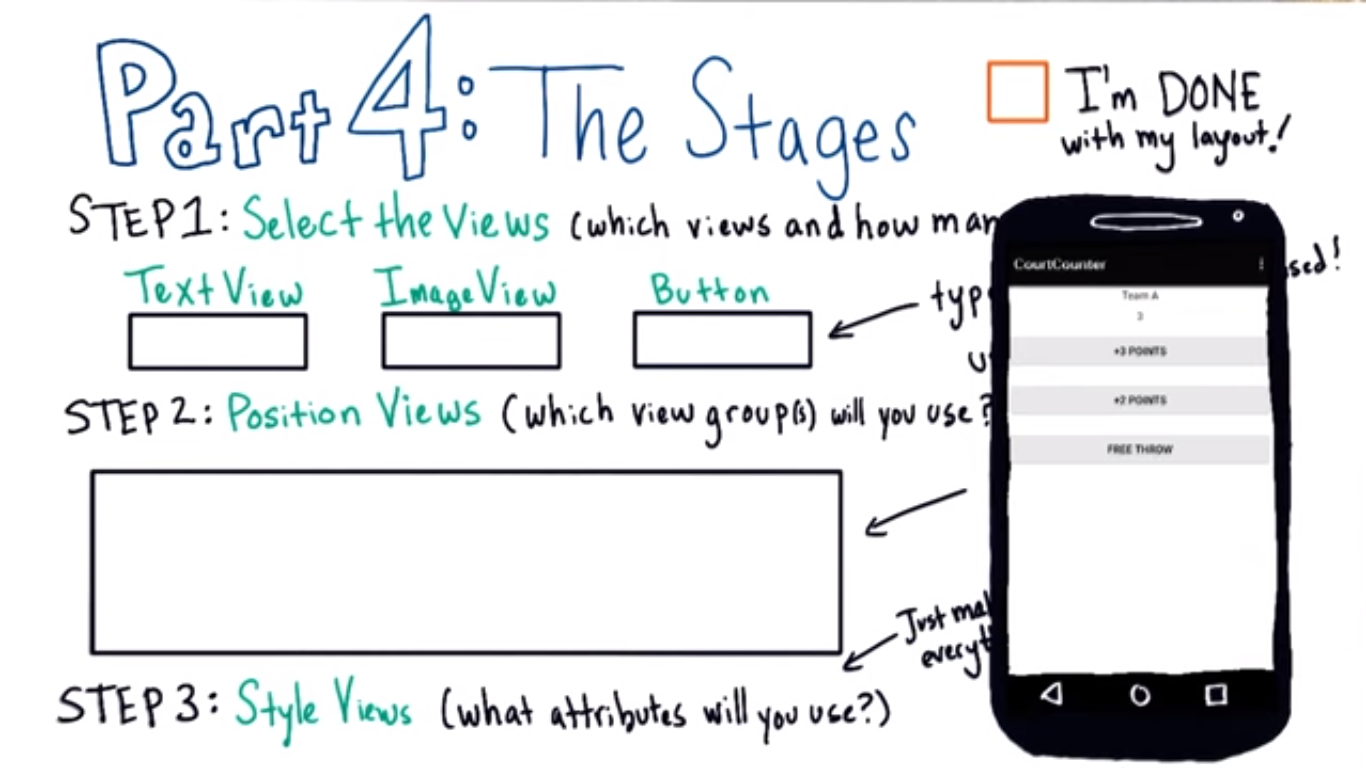 Part 4: The Stages
I'm DONE
with my layout!
STEP 1: Select the Views (which views and how
TextView ImageView Button
STEP 2: Position Views (which view group(s) will you use?
STEP 3: Style Views (what attributes will you use?)
Just
CourtCounter
Team A
3
+3 POINTS
+2 POINTS
FREE THROW